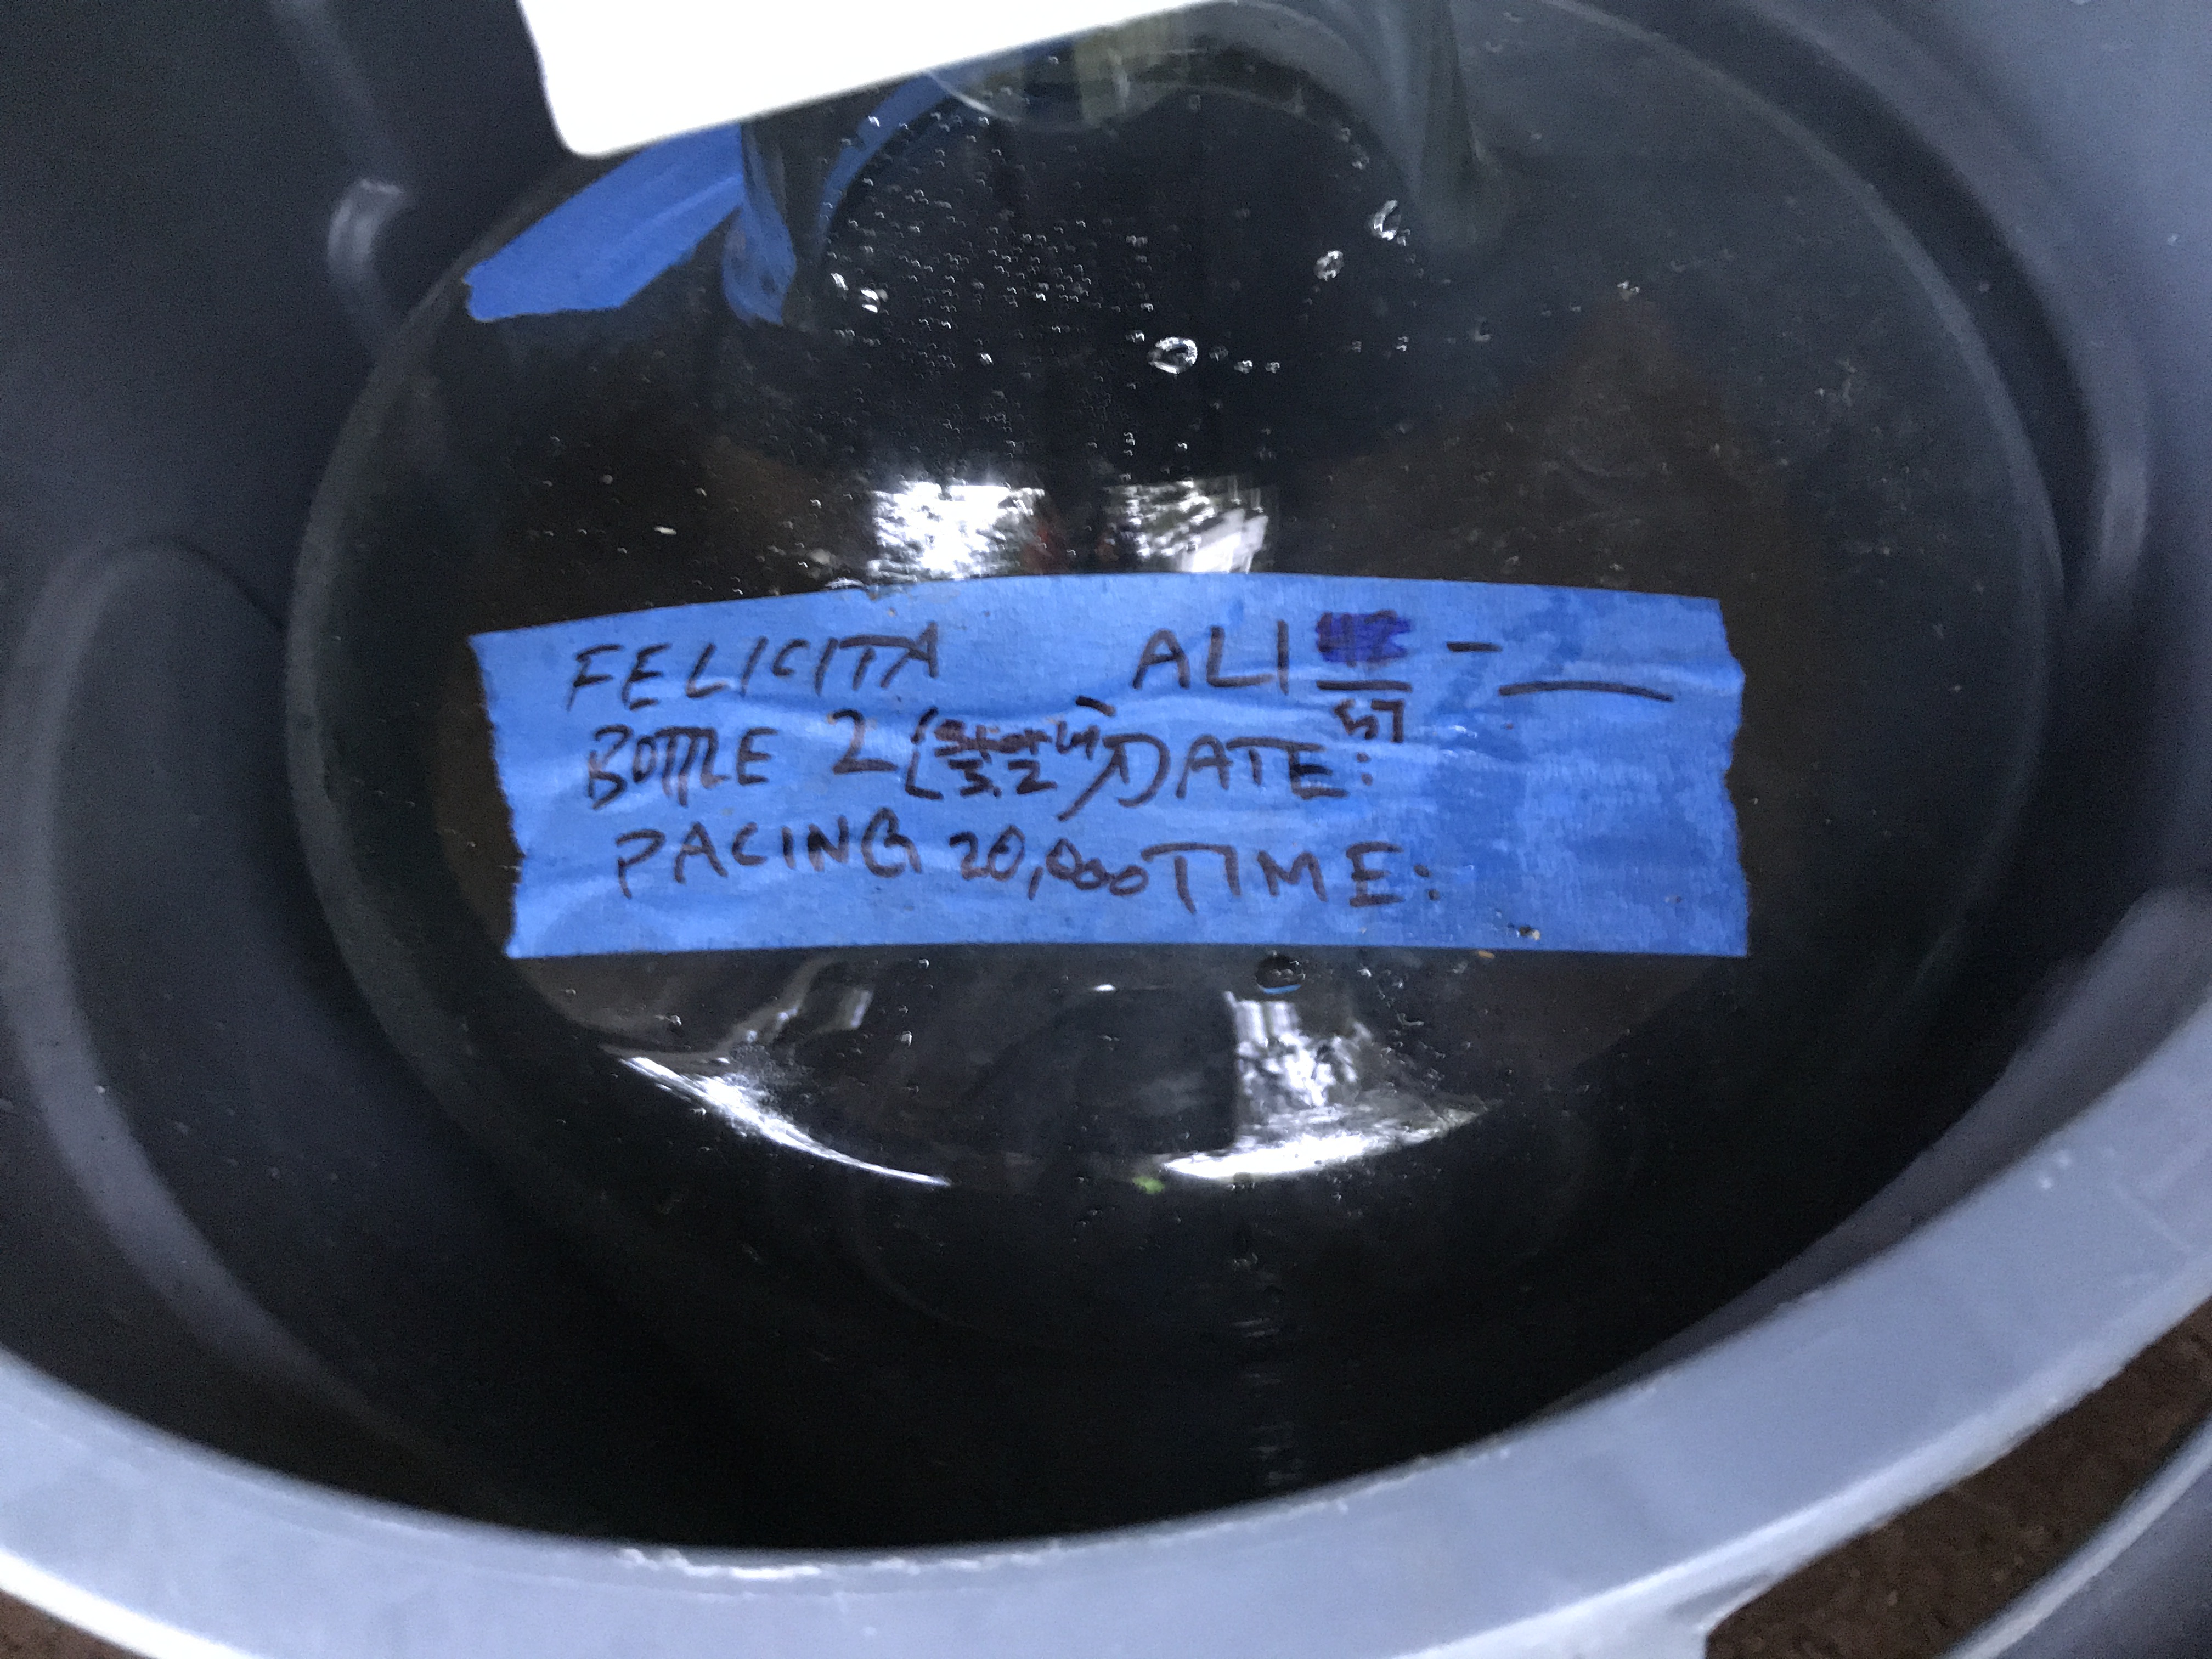 FELICITA ALI 57 -
BOTTLE 2 (3.2) DATE:
PACING 20,000 TIME: